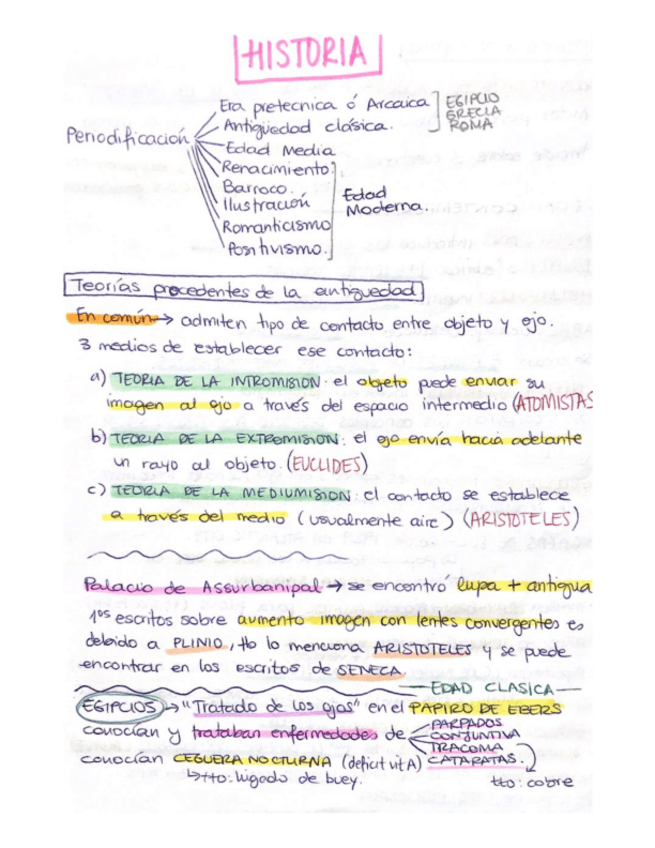 HISTORIA
Periodificación
Era pretecnica ó Arcaica
Antigüedad clásica.
EGIPCIO
GRECIA
ROMA
Edad Media
Renacimiento
Barroco.
Ilustración
Romanticismo
Positivismo.
Edad
Moderna.
Teorías procedentes de la antiguedad
En común → admiten tipo de contacto entre objeto y ojo.
3 medios de establecer ese contacto:
a) TEORIA DE LA INTROMISION: el objeto puede enviar su
imagen al ojo a través del espacio intermedio (ATOMISTAS
b) TEORIA DE LA EXTROMISION: el ojo envía hacia adelante
un rayo al objeto. (EUCLIDES)
c) TEORIA DE LA MEDIUMISION: el contacto se establece
a través del medio (usualmente aire) (ARISTOTELES)
Palacio de Assurbanipal → se encontró lupa + antigua
1os escritos sobre aumento imagen con lentes convergentes es
debido a PLINIO, tb lo menciona ARISTOTELES y se puede
encontrar en los escritos de SENECA.
EDAD CLASICA
EGIPCIOS → "Tratado de los ojos" en el PAPIRO DE EBERS
conocían y trataban enfermedades de
PARPADOS
CONJUNTIVA
TRACOMA
CATARATAS.
conocían CEGUERA NOCTURNA (deficit vit A)
↳ tto: higado de buey.
tto: cobre